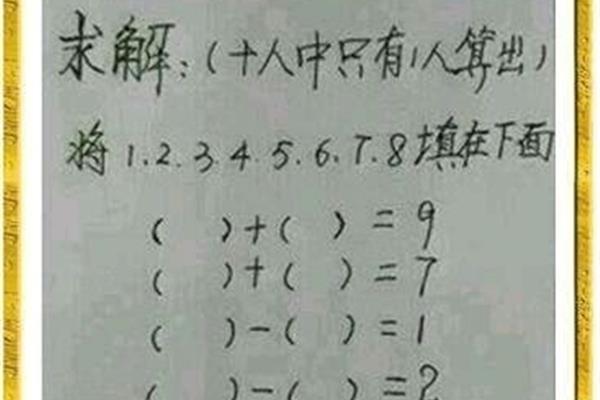 求解:(十人中只有1人算出)
将1.2.3.4.5.6.7.8填在下面
( )+( )=9
( )+( )=7
( )-( )=1
( )-( )=2